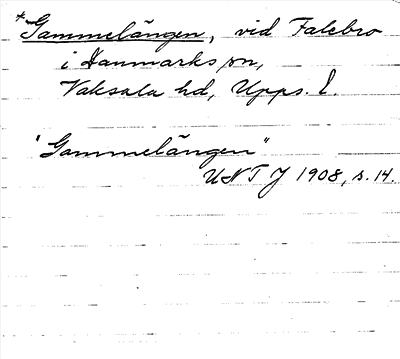 *Gammelängen, vid Falebro
i Danmarks sn,
Vaksala hd, Upps. l.
"Gammelängen"
UNT J 1908, s. 14.